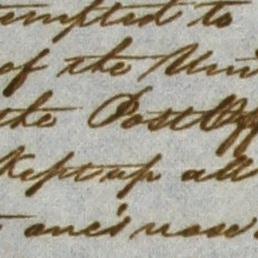 to
of the Uni
the Post Off
kept up all
one's nose